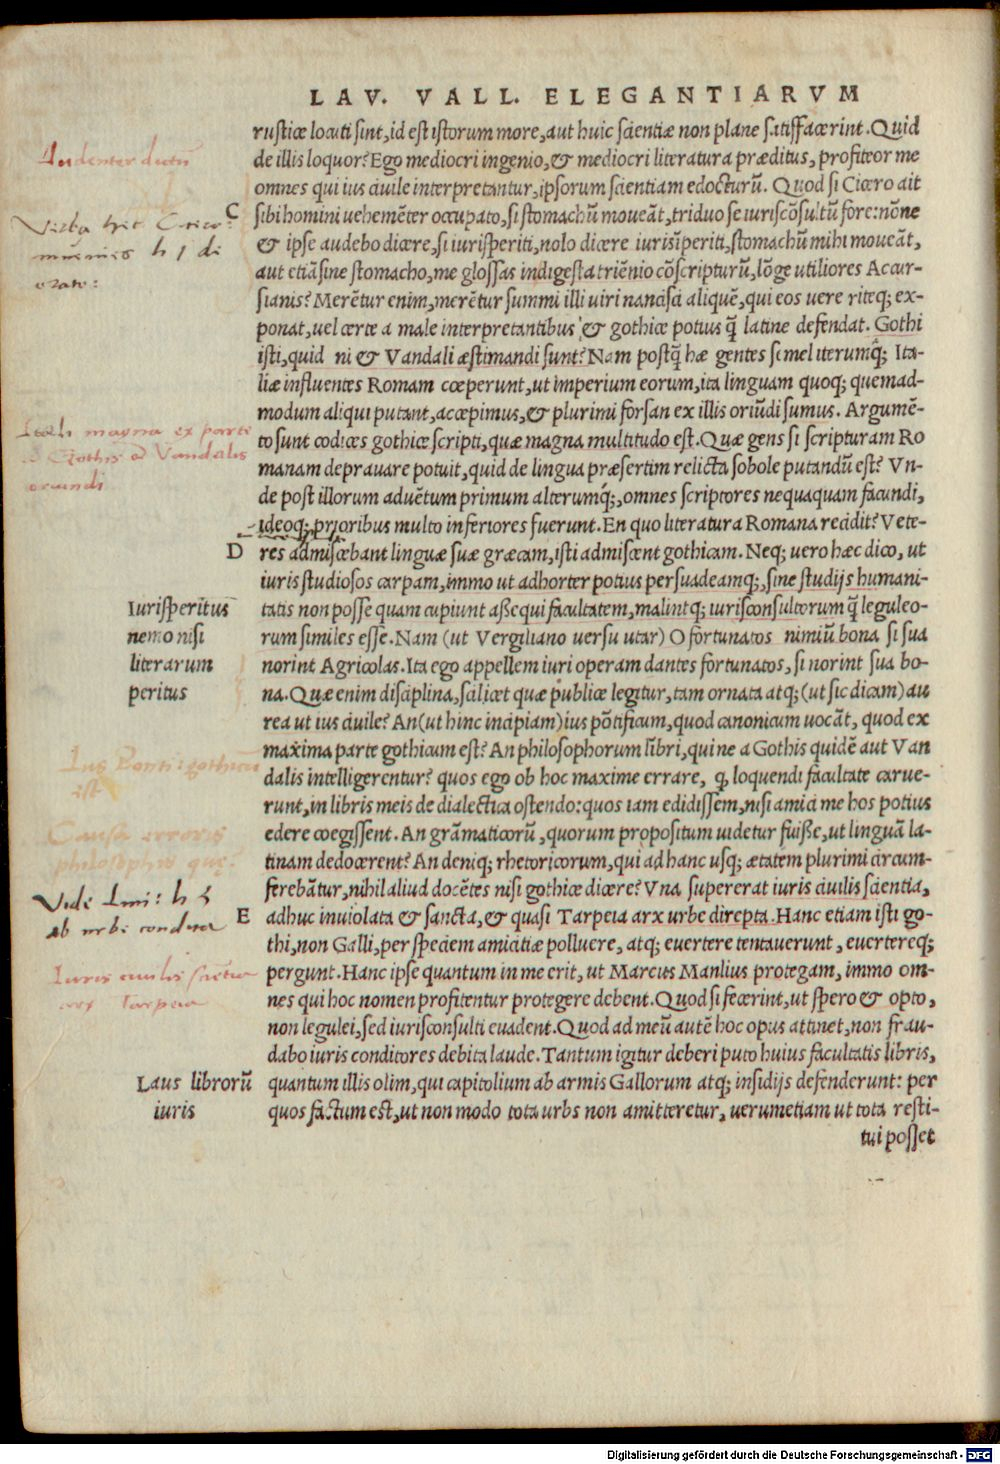 LAV. VALL. ELEGANTIARVM
rusticæ locuti sint, id est istorum more, aut huic scientiæ non plane satisfacerint. Quid
de illis loquor? Ego mediocri ingenio, & mediocri literatura præditus, profiteor me
omnes qui ius ciuile interpretantur, ipsorum scientiam edocturũ. Quod si Cicero ait
C
sibi homini uehemẽter occupato, si stomachũ moueãt, triduo se iuriscõsultũ fore: nõne
& ipse audebo dicere, si iurisperiti, nolo dicere iurisĩperiti, stomachũ mihi moueãt,
aut etiã sine stomacho, me glossas indigesta triẽnio cõscripturũ, lõge utiliores Accur-
sianis? Merẽtur enim, merẽtur summi illi uiri nancisci aliquẽ, qui eos uere riteq; ex-
ponat, uel certe a male interpretantibus & gothice potius q̃ latine defendat. Gothi
isti, quid ni & Vandali æstimandi sunt? Nam postq̃ hæ gentes semel iterumq̃; Ita-
liæ influentes Romam cœperunt, ut imperium eorum, ita linguam quoq; quemad-
modum aliqui putant, accepimus, & plurimi forsan ex illis oriũdi sumus. Argumẽ-
to sunt codices gothice scripti, quæ magna multitudo est. Quæ gens si scripturam Ro
manam deprauare potuit, quid de lingua præsertim relicta sobole putandũ est? Vn-
de post illorum aduẽtum primum alterumq́;, omnes scriptores nequaquam facundi,
ideoq; prioribus multo inferiores fuerunt. En quo literatura Romana recidit? Vete-
D
res admiscebant linguæ suæ græcam, isti admiscent gothicam. Neq; uero hæc dico, ut
iuris studiosos carpam, immo ut adhorter potius persuadeamq;, sine studijs humani-
tatis non posse quam cupiunt asse qui facultatem, malintq; iurisconsultorum q̃ leguleo-
rum similes esse. Nam (ut Vergiliano uersu utar) O fortunatos nimiũ bona si sua
norint Agricolas. Ita ego appellem iuri operam dantes fortunatos, si norint sua bo-
na. Quæ enim disciplina, scilicet quæ publice legitur, tam ornata atq; (ut sic dicam) au
rea ut ius ciuile? An (ut hinc incipiam) ius põtificum, quod canonicum uocãt, quod ex
maxima parte gothicum est? An philosophorum libri, qui ne a Gothis quidẽ aut Van
dalis intelligerentur? quos ego ob hoc maxime errare, q, loquendi facultate carue-
runt, in libris meis de dialectica ostendo: quos iam edidissem, nisi amici me hos potius
edere coegissent. An grãmaticorũ, quorum propositum uidetur fuisse, ut linguã la-
tinam dedocerent? An deniq; rhetoricorum, qui ad hanc usq; ætatem plurimi circum-
ferebãtur, nihil aliud docẽtes nisi gothice dicere? Vna supererat iuris ciuilis scientia,
E
adhuc inuiolata & sancta, & quasi Tarpeia arx urbe direpta. Hanc etiam isti go-
thi, non Galli, per speciem amicitiæ polluere, atq; euertere tentauerunt, euertereq;
pergunt. Hanc ipse quantum in me erit, ut Marcus Manlius protegam, immo om-
nes qui hoc nomen profitentur protegere debent. Quod si fecerint, ut spero & opto,
non legulei, sed iurisconsulti euadent. Quod ad meũ autẽ hoc opus attinet, non frau-
dabo iuris conditores debita laude. Tantum igitur deberi puto huius facultatis libris,
quantum illis olim, qui capitolium ab armis Gallorum atq; insidijs defenderunt: per
quos factum est, ut non modo tota urbs non amitteretur, uerumetiam ut tota resti-
tui posset
Audenter dictũ
Verba hic Cicero:
h 1 di
orato:
Itali magna ex parte
Gothis & Vandalis
oriundi
Iurisperitus
nemo nisi
literarum
peritus
Ius Ponti: gothicũ
est
Causa erroris
philosophis quę?
Vide Liui: h 5
ab urbe condita
Iuris ciuilis scientia
arx Tarpeia
Laus librorũ
iuris
Digitalisierung gefördert durch die Deutsche Forschungsgemeinschaft - DFG